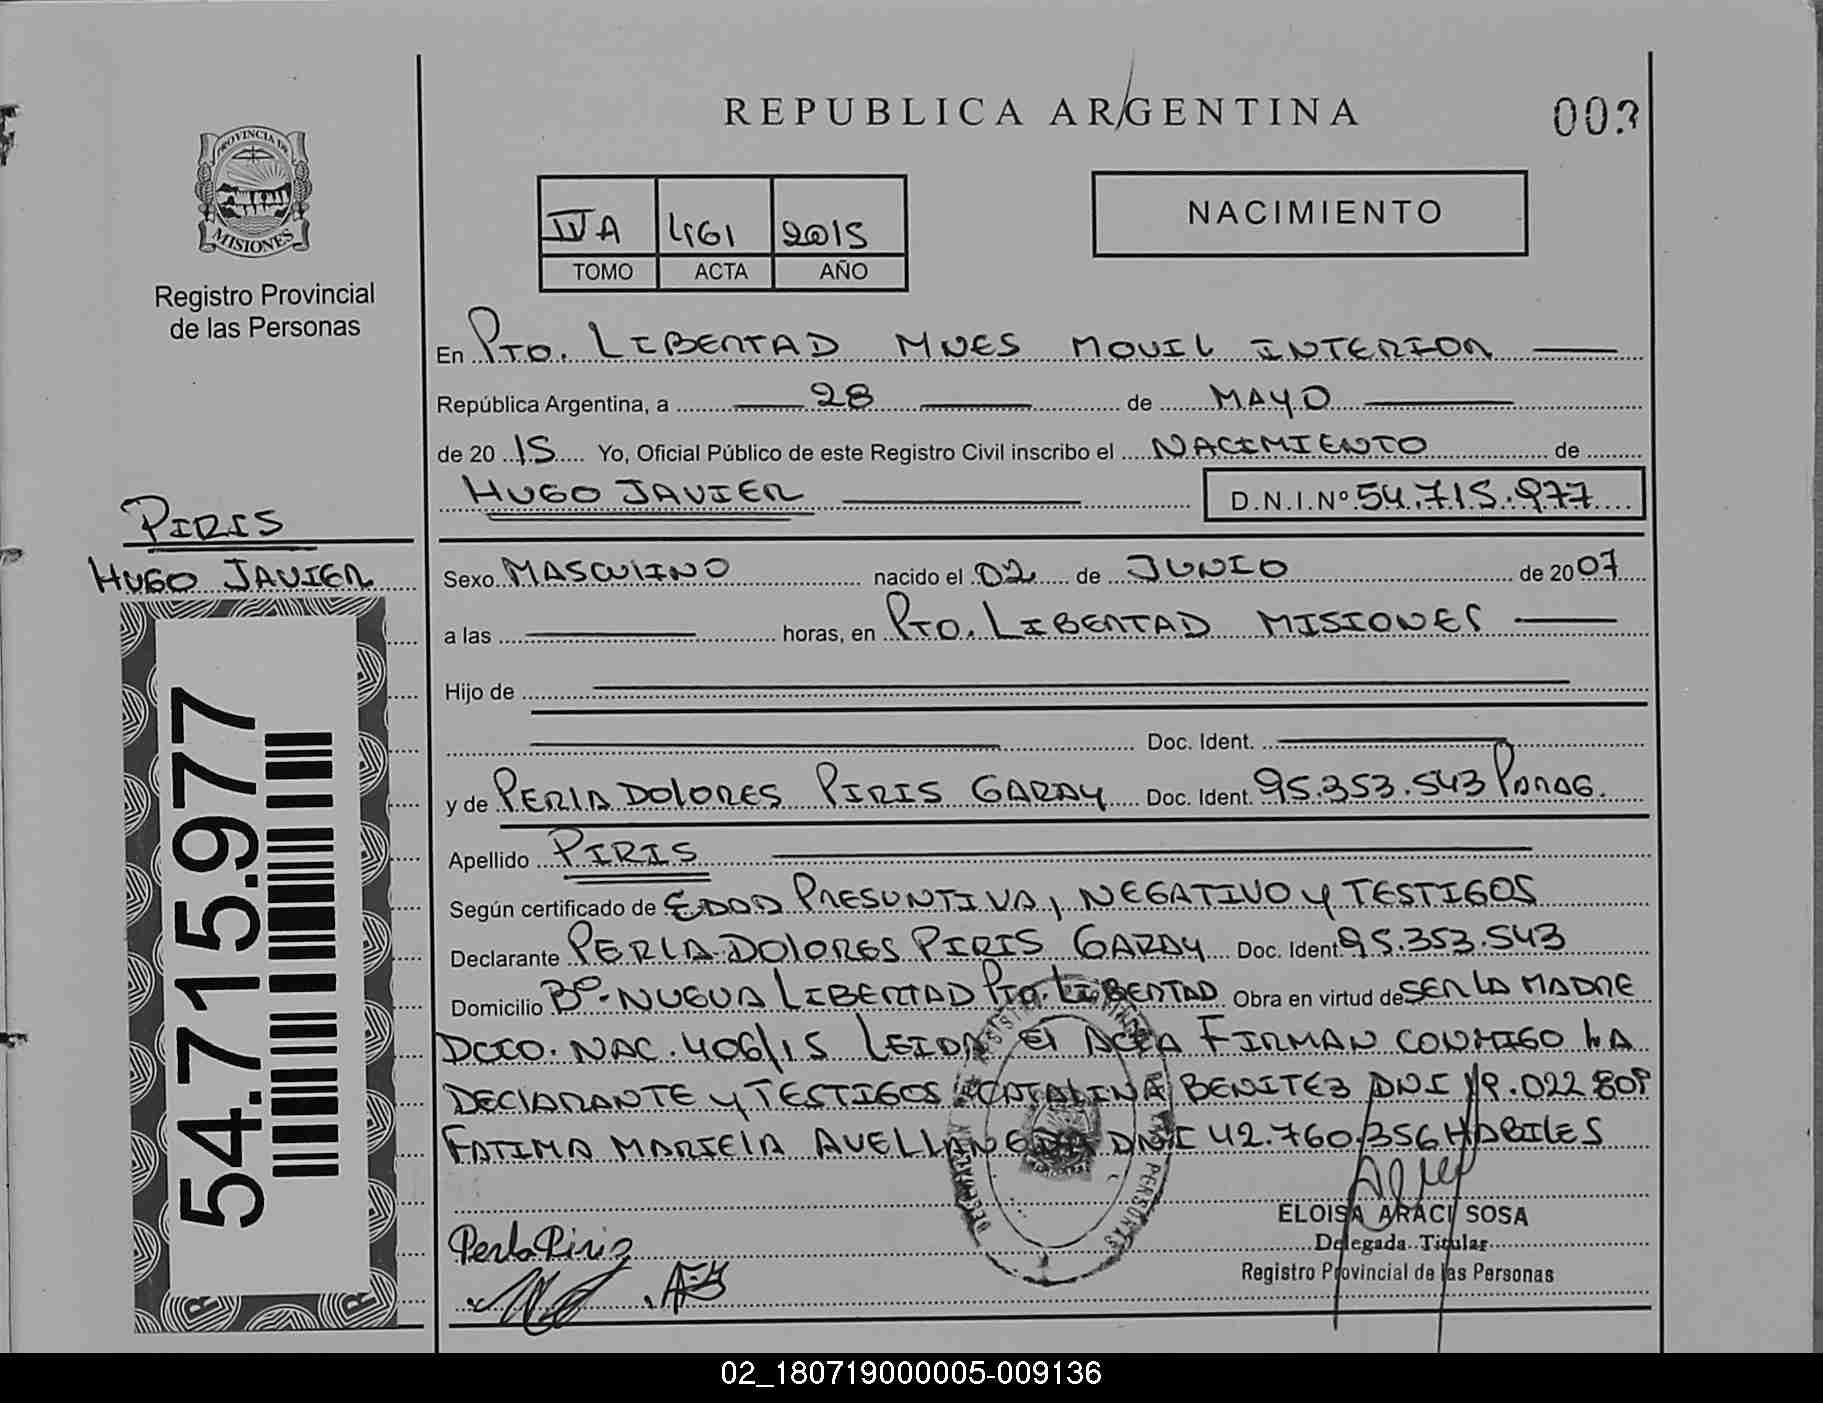 REPUBLICA ARGENTINA
PROVINCIA DE
MISIONES
Registro Provincial
de las Personas
IVA 461 2015
TOMO ACTA AÑO
NACIMIENTO
En Pto. LIBERTAD MNES MOVIL INTERIOR
República Argentina, a 28 de MAYO
de 2015 Yo, Oficial Público de este Registro Civil inscribo el NACIMIENTO de
HUGO JAVIER D.N.I.Nº 54.715.977
PIRIS
HUGO JAVIER
Sexo MASCULINO nacido el 02 de JUNIO de 2007
a las horas, en Pto. LIBERTAD MISIONES
Hijo de
Doc. Ident.
y de PERLA DOLORES PIRIS GARAY Doc. Ident. 95.353.543 PARAG.
Apellido PIRIS
Según certificado de EDAD PRESUNTIVA, NEGATIVO y TESTIGOS
Declarante PERLA DOLORES PIRIS GARAY Doc. Ident. 95.353.543
Domicilio Bº. NUEVA LIBERTAD Pto. LIBERTAD Obra en virtud de SER LA MADRE
DCIO. NAC. 406/15 LEIDA El ACTA FIRMAN CONMIGO LA
DECLARANTE y TESTIGOS CATALINA BENITEZ DNI 19.022.809
FATIMA MARIELA AVELLANEDA DNI 42.760.356 HABILES
54.715.977
Perla Piriz
ELOISA ARACI SOSA
Delegada Titular
Registro Provincial de las Personas
02_180719000005-009136